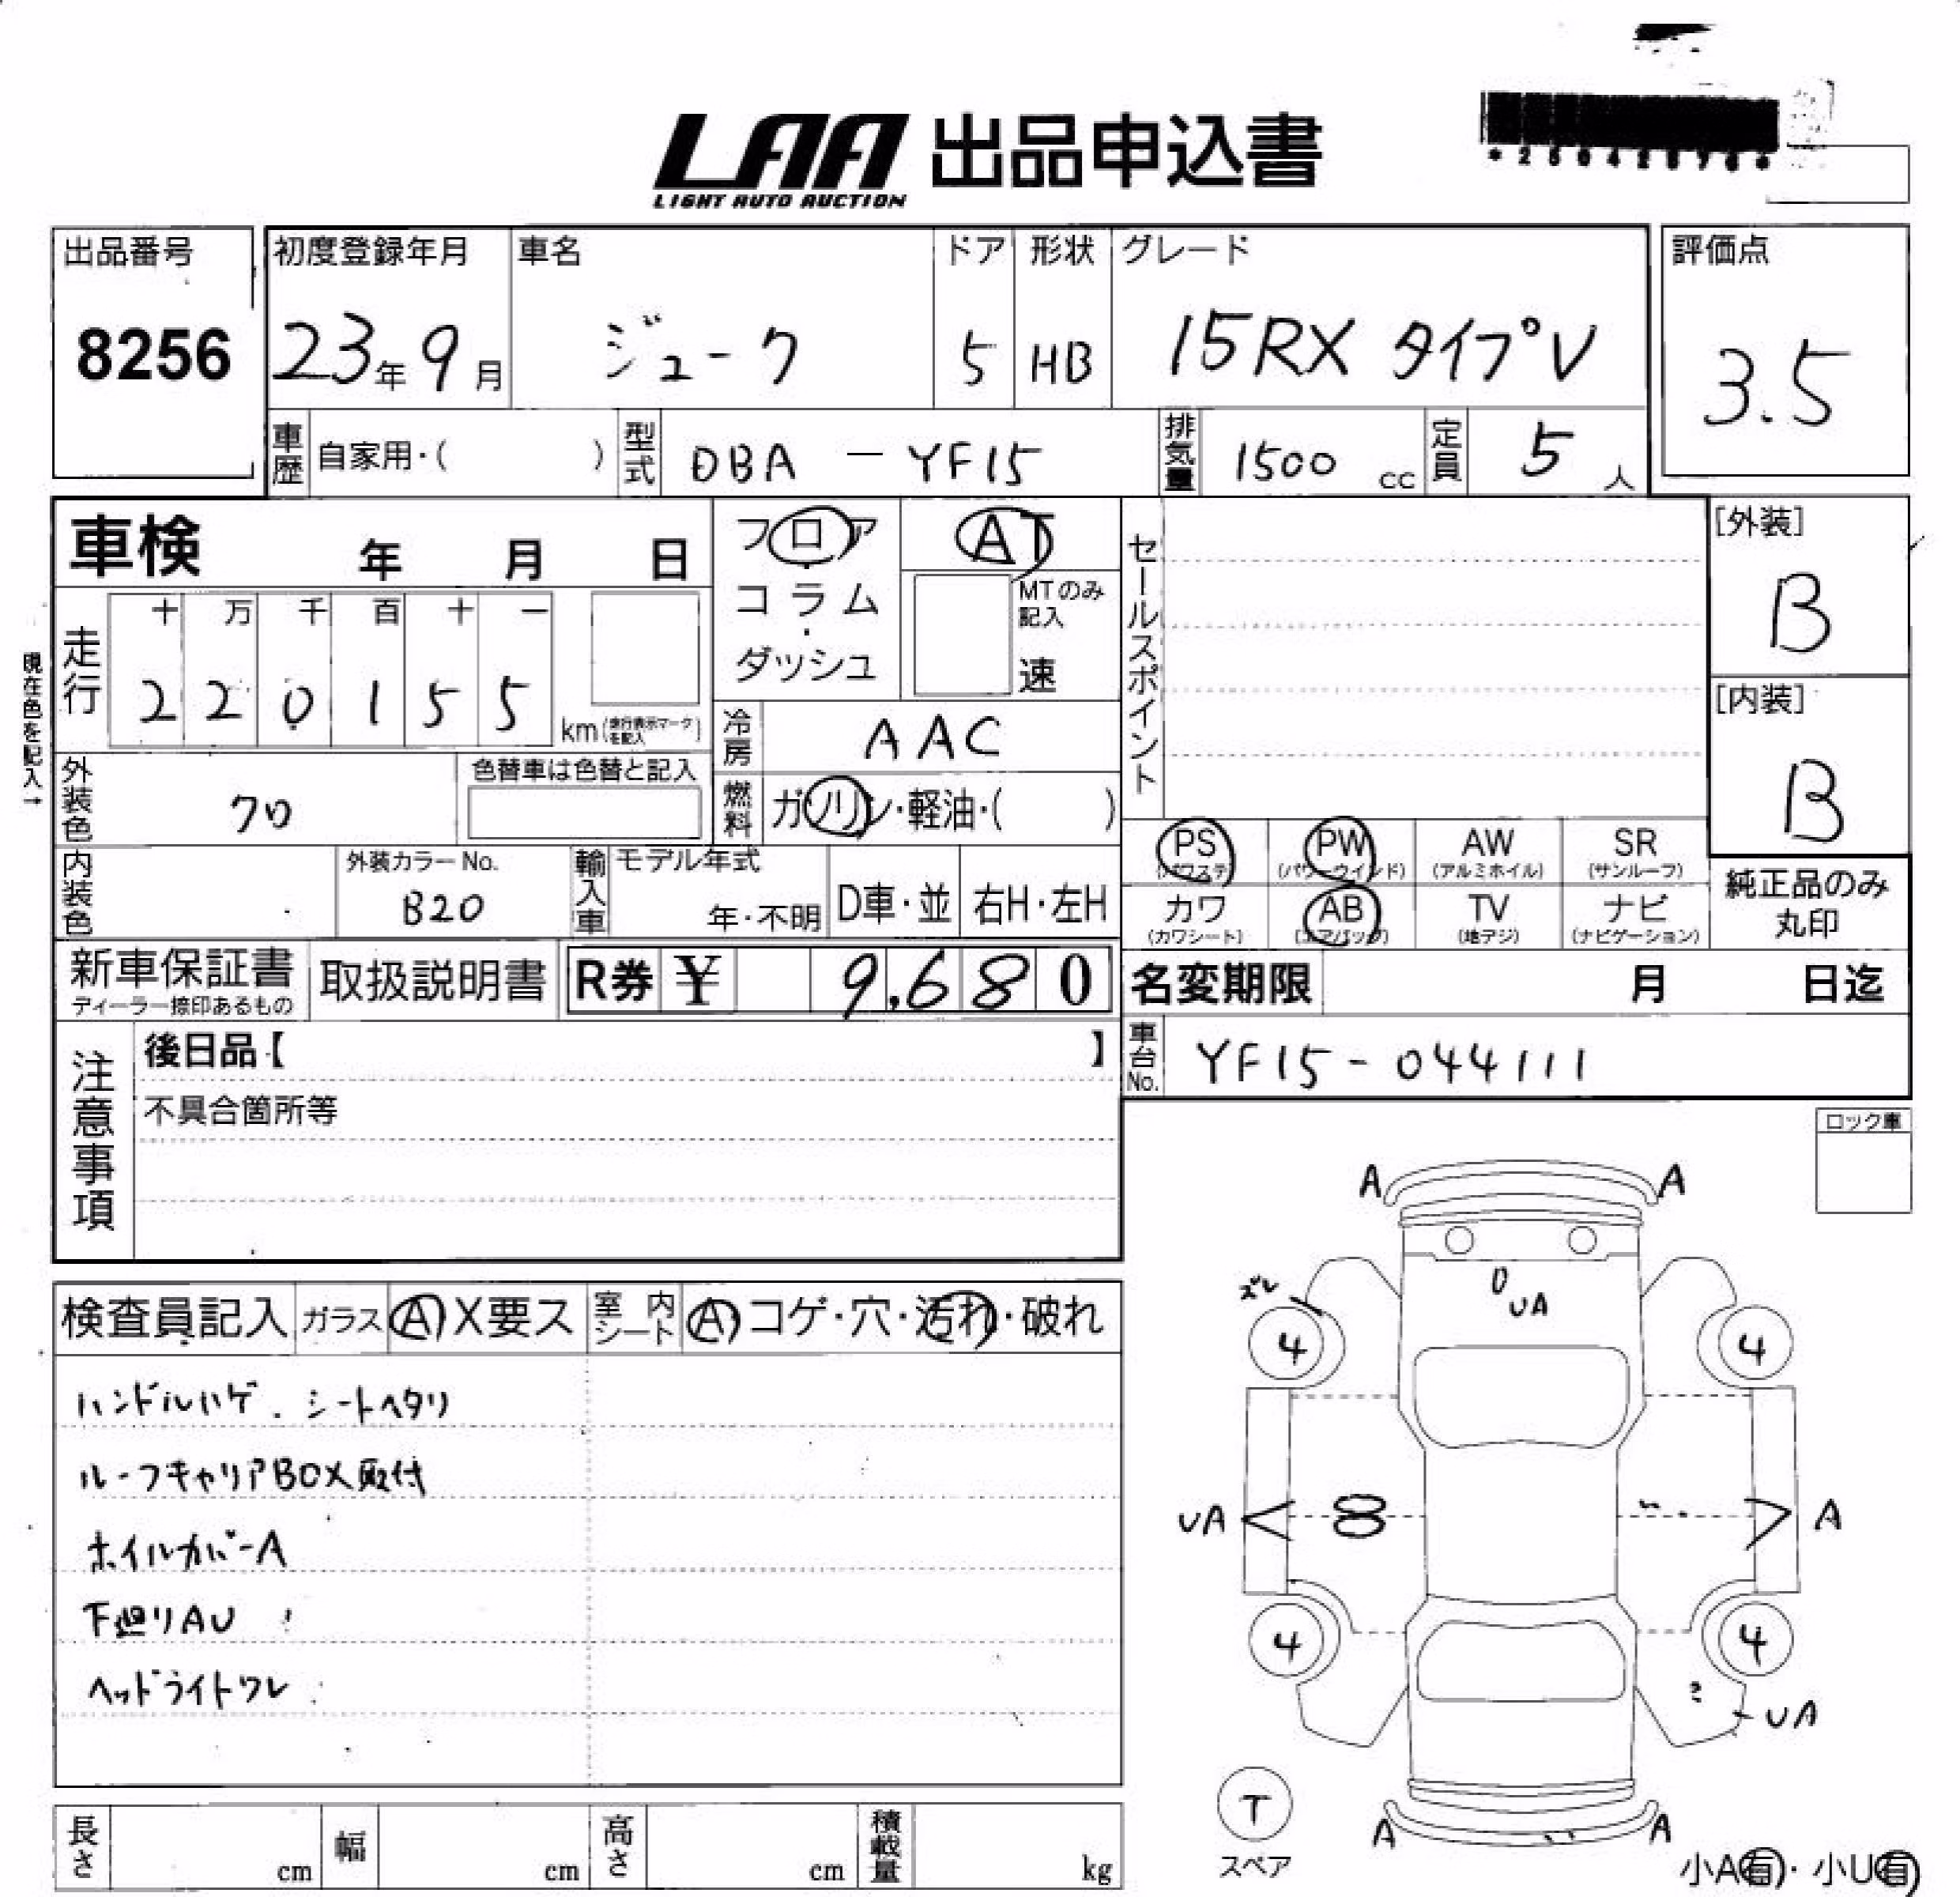 LAA 出品申込書
LIGHT AUTO AUCTION
出品番号
8256
初度登録年月
23年 9月
車名
ジューク
ドア
5
形状
HB
グレード
15RX タイプV
評価点
3.5
車歴 自家用・( )
型式 DBA - YF15
排気量 1500 cc
定員 5 人
車検 年 月 日
フロア
・
コラム
・
ダッシュ
AT
MTのみ
記入
速
セールスポイント
[外装]
B
[内装]
B
現在色を記入→
走行
十 万 千 百 十 一
2 2 0 1 5 5
km(走行表示マークを記入)
冷房 AAC
燃料 ガソリン・軽油・( )
外装色 クロ
色替車は色替と記入
内装色
外装カラーNo.
B20
輸入車 モデル年式
年・不明 D車・並 右H・左H
PS
(パワステ)
PW
(パワーウインド)
AW
(アルミホイル)
SR
(サンルーフ)
カワ
(カワシート)
AB
(エアバッグ)
TV
(地デジ)
ナビ
(ナビゲーション)
純正品のみ
丸印
新車保証書
ディーラー捺印あるもの
取扱説明書
R券 ¥ 9,680
名変期限 月 日迄
車台No. YF15-044111
注意事項
後日品【 】
不具合箇所等
ロック車
検査員記入 ガラス A X要ス 室内シート A コゲ・穴・汚れ・破れ
ハンドルハゲ. シートヘタリ
ルーフキャリアBOX取付
ホイルカバーA
下廻りAU
ヘッドライトワレ
A A
ズレ
UA
4 4
UA 8 A
4 4
UA
T
スペア
A A
小A有・小U有
長さ cm 幅 cm 高さ cm 積載量 kg